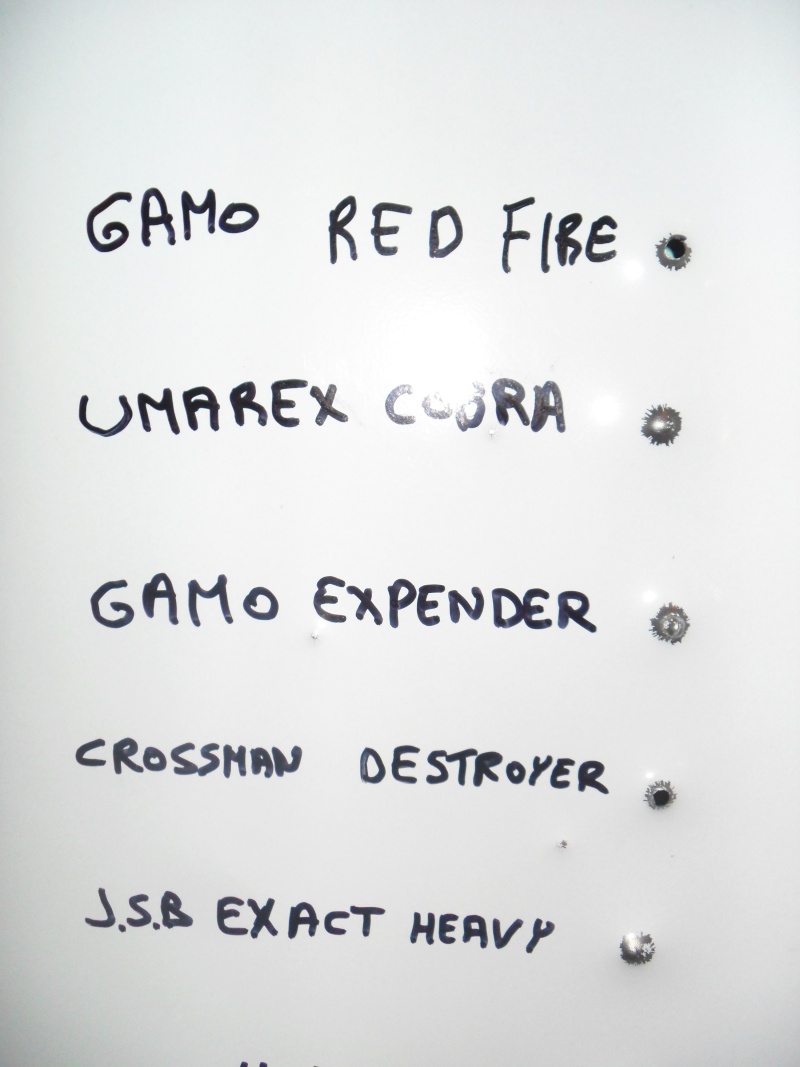 GAMO RED FIRE
UMAREX COBRA
GAMO EXPENDER
CROSSMAN DESTROYER
J.S.B EXACT HEAVY